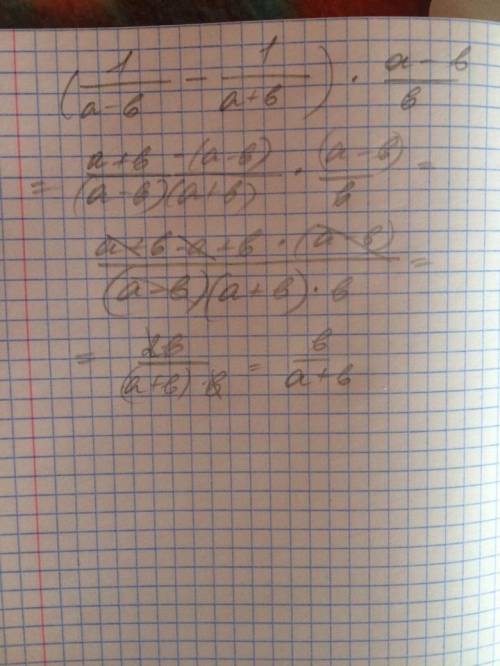 (1/(a-b) - 1/(a+b)) · (a-b)/b
= (a+b-(a-b))/((a-b)(a+b)) · (a-b)/b =
(a+b-a+b·(a-b))/((a-b)(a+b)·b) =
= 2b/((a+b)·b) = b/(a+b)